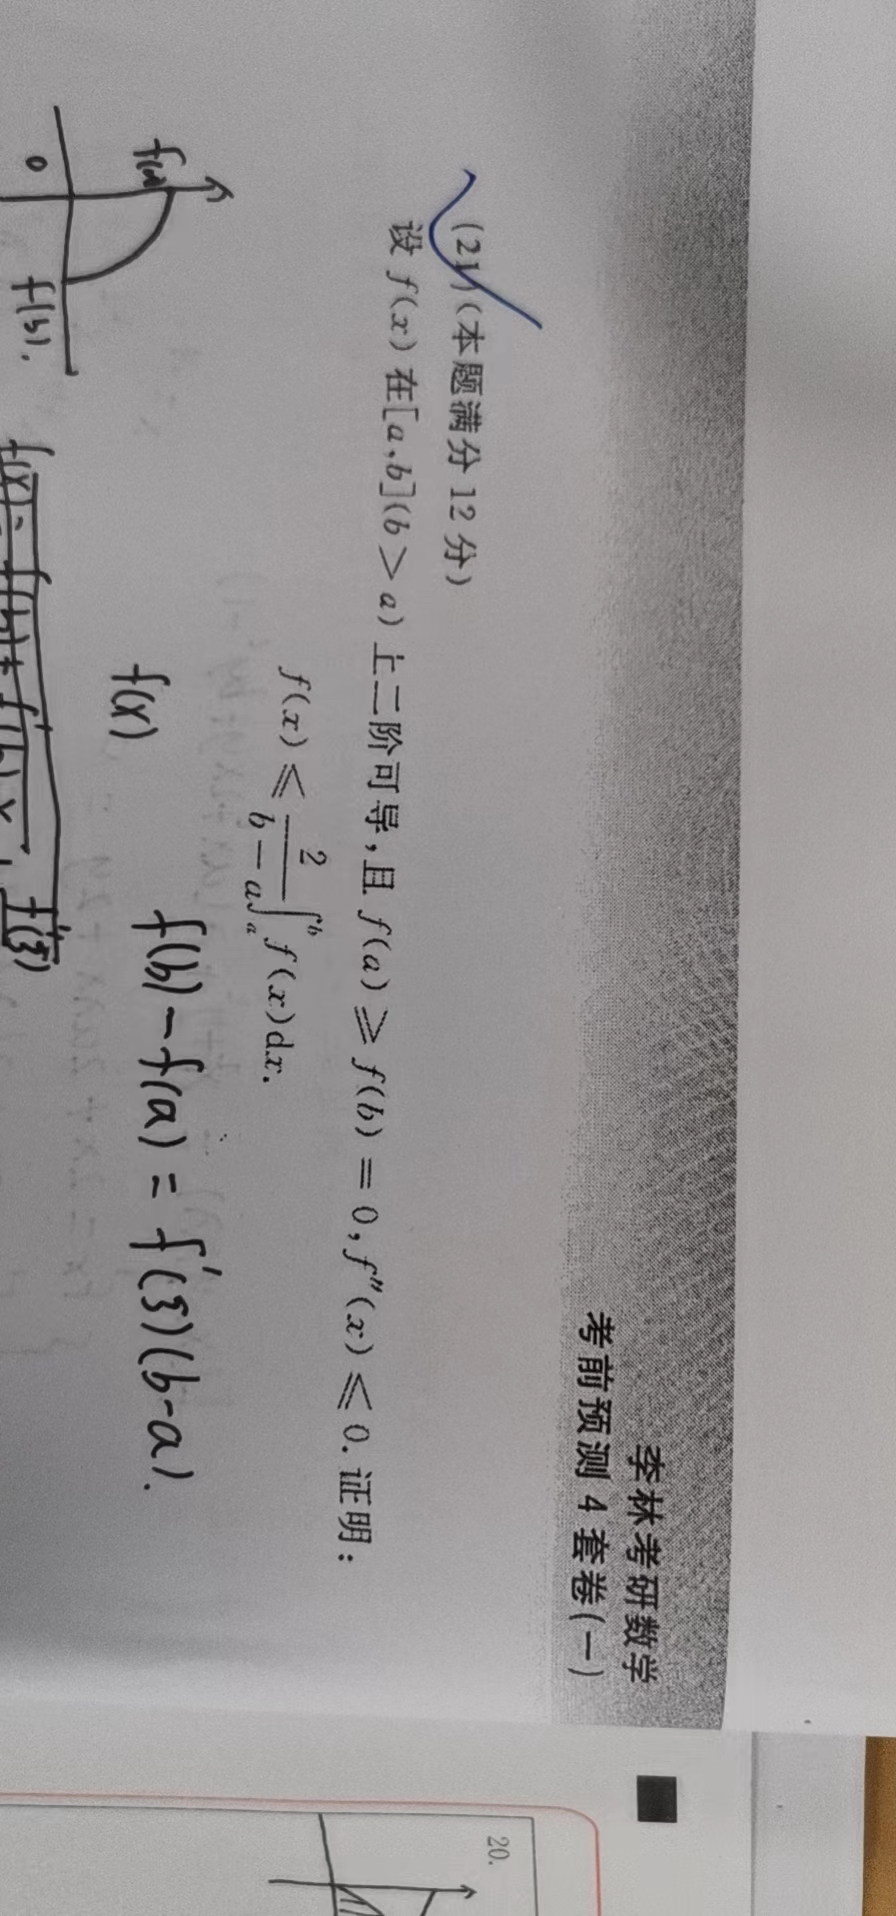 李林考研数学
考前预测 4 套卷(一)
(21)(本题满分 12 分)
设 f(x) 在[a,b](b>a)上二阶可导,且 f(a)≥f(b)=0,f″(x)≤0.证明:
f(x)≤\frac{2}{b-a}∫_a^b f(x)dx.
f(x)
f(b)-f(a)=f′(ξ)(b-a).
f(a)
0
f(b).
20.